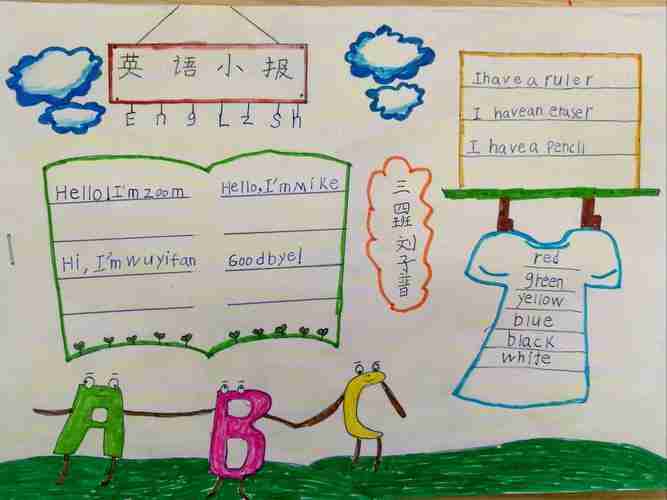 英语小报
EngLzSh
Hello,I'm zoom
Hello,I'm Mike
Hi, I'm wuyifan
Goodbye!
三四班 刘子音
I have a ruler
I havean eraser
I have a pencil
red
green
yellow
blue
black
white
A B C